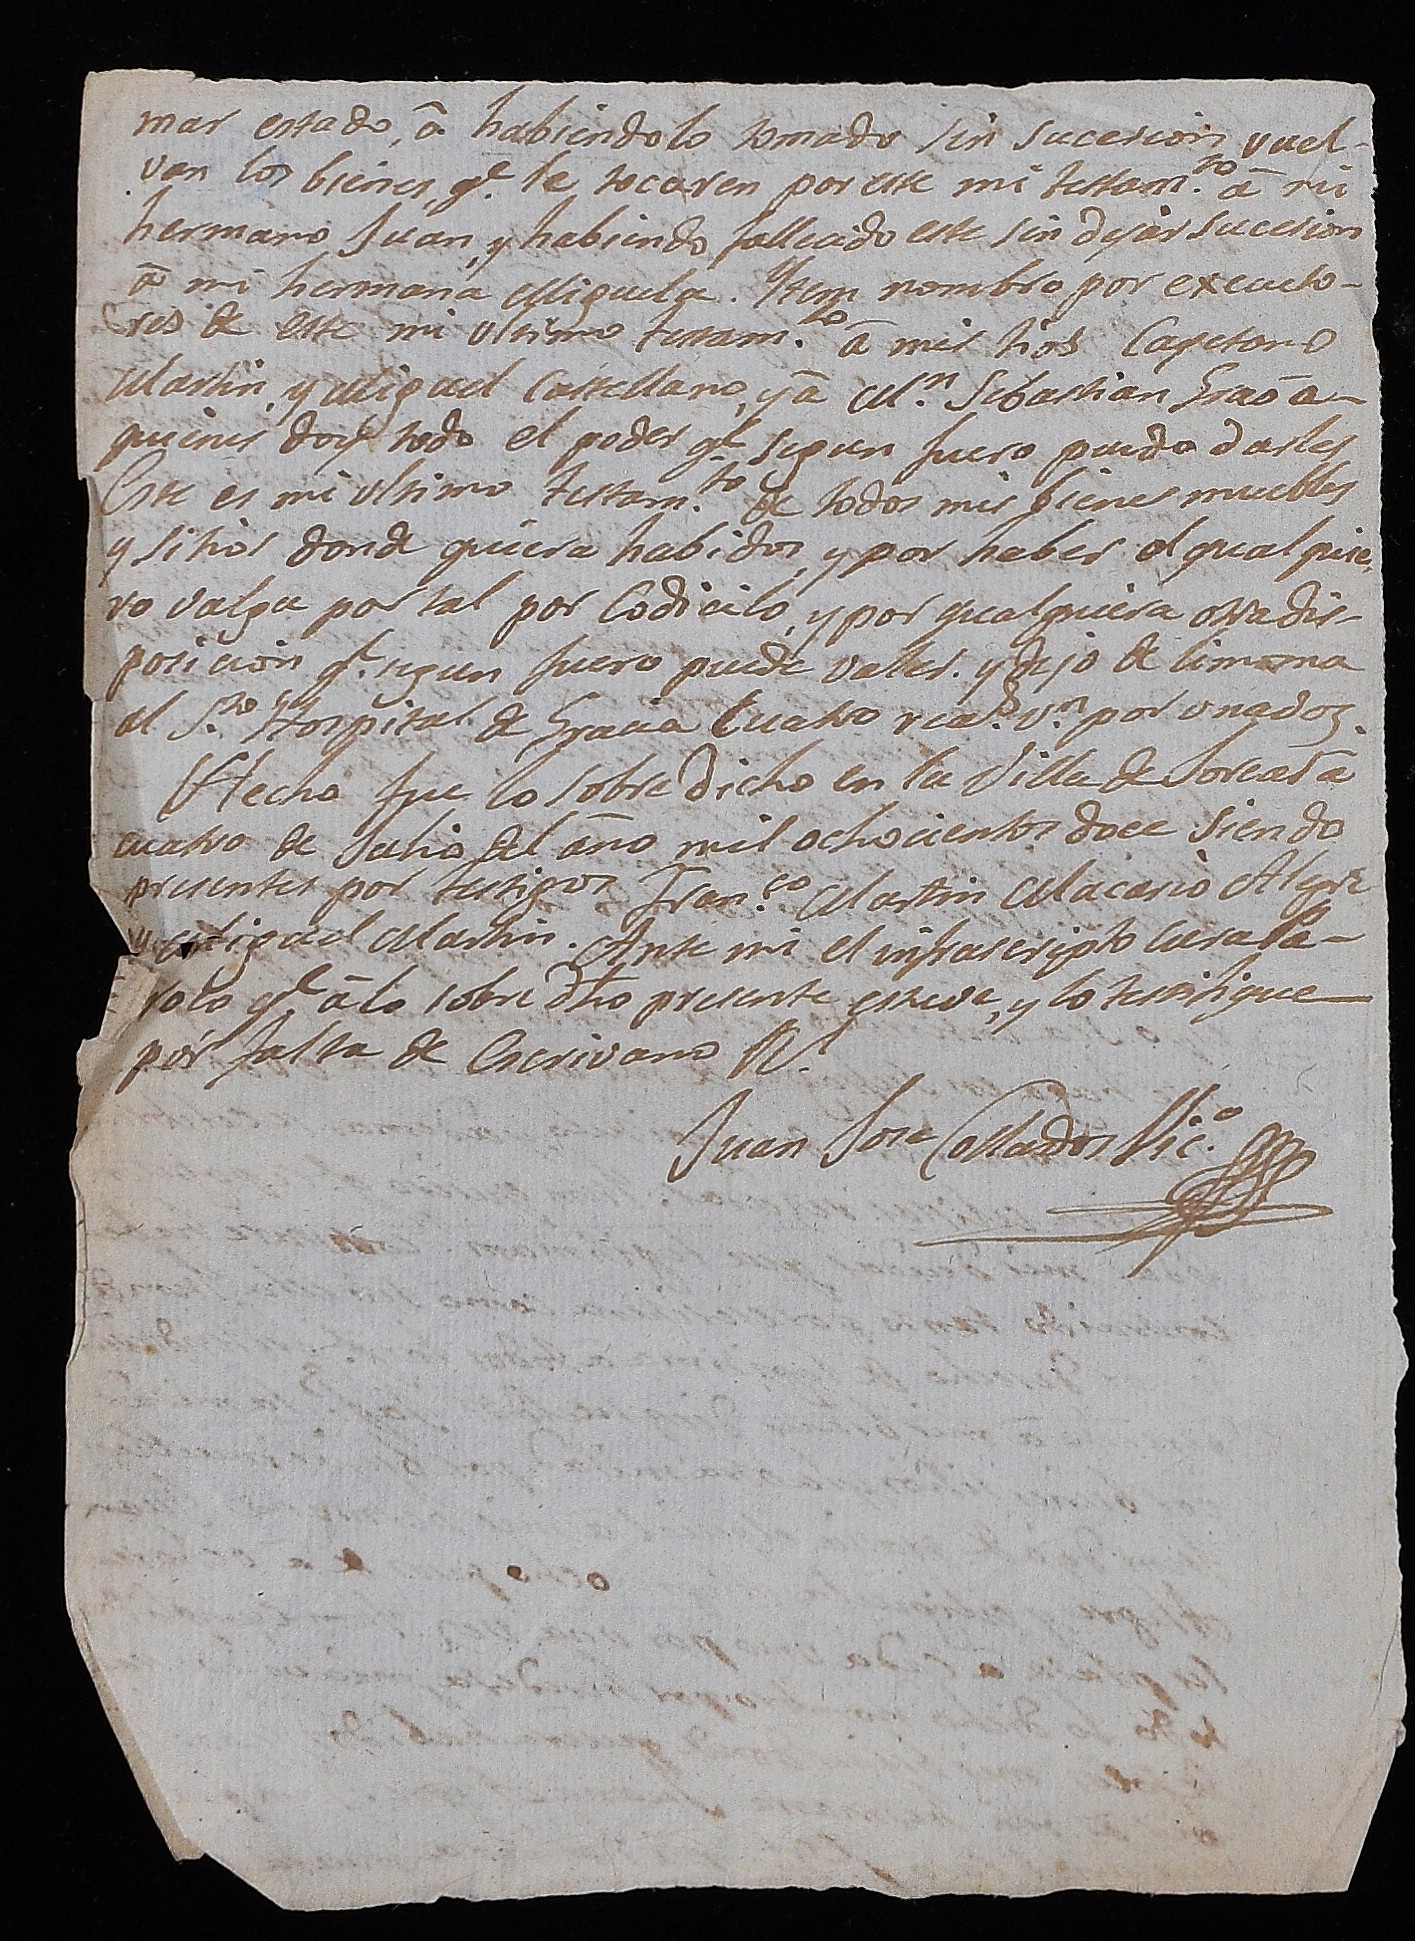 mar estado, ô habiendolo tomado sin sucesion vuel-
van los bienes, q.e le tocaren por este mi testam.to â mi
hermano Juan, y habiendo fallecido este sin dejar sucesion
â mi hermana Miguela. Ytem nombro por executo-
res de este mi ultimo testam.to â mis tios Cayetano
Martin, y Miguel Castellano, y â M.n Sebastian Grao â
quienes doy todo el poder q.e segun fuero puedo darles
Este es mi ultimo testam.to de todos mis bienes muebles
y sitios donde quiera habidos, y por haber el qual quie-
ro valga por tal por Codicilo, y por qualquiera otra dis-
posicion q.e segun fuero puede valer. y dejo de limosna
al S.to Hospital de Gracia Cuatro rea.s v.n por una vez.
Hecho fue lo sobre dicho en la Villa de â
cuatro de Julio del año mil ochocientos doce siendo
presentes por testigos Fran.co Martin Macario Alegre
y Miguel Martin. Ante mi el infrascripto Cura Pa-
rroco q.e â lo sobre dho presente estuve, y lo testifique
por falta de Escrivano R.l
Juan Jose Collados Vic.o